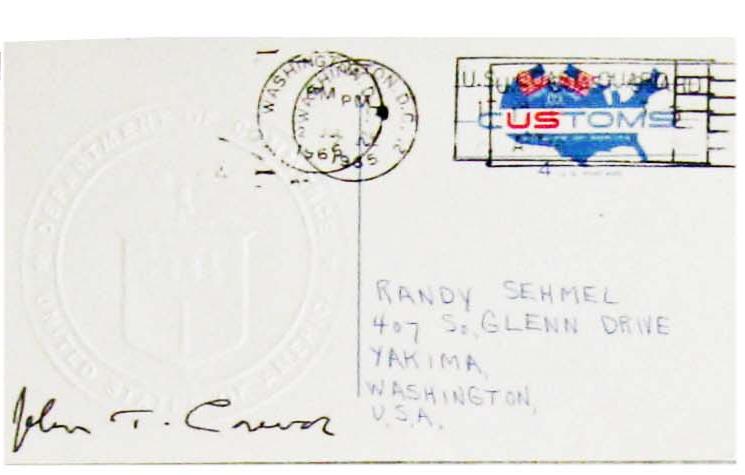 WASHINGTON, D.C.
PM
1965
U.S. COAST GUARD
CUSTOMS
4
DEPARTMENT OF COMMERCE
UNITED STATES OF AMERICA
RANDY SEHMEL
407 So, GLENN DRIVE
YAKIMA,
WASHINGTON,
U.S.A.
John T. Connor